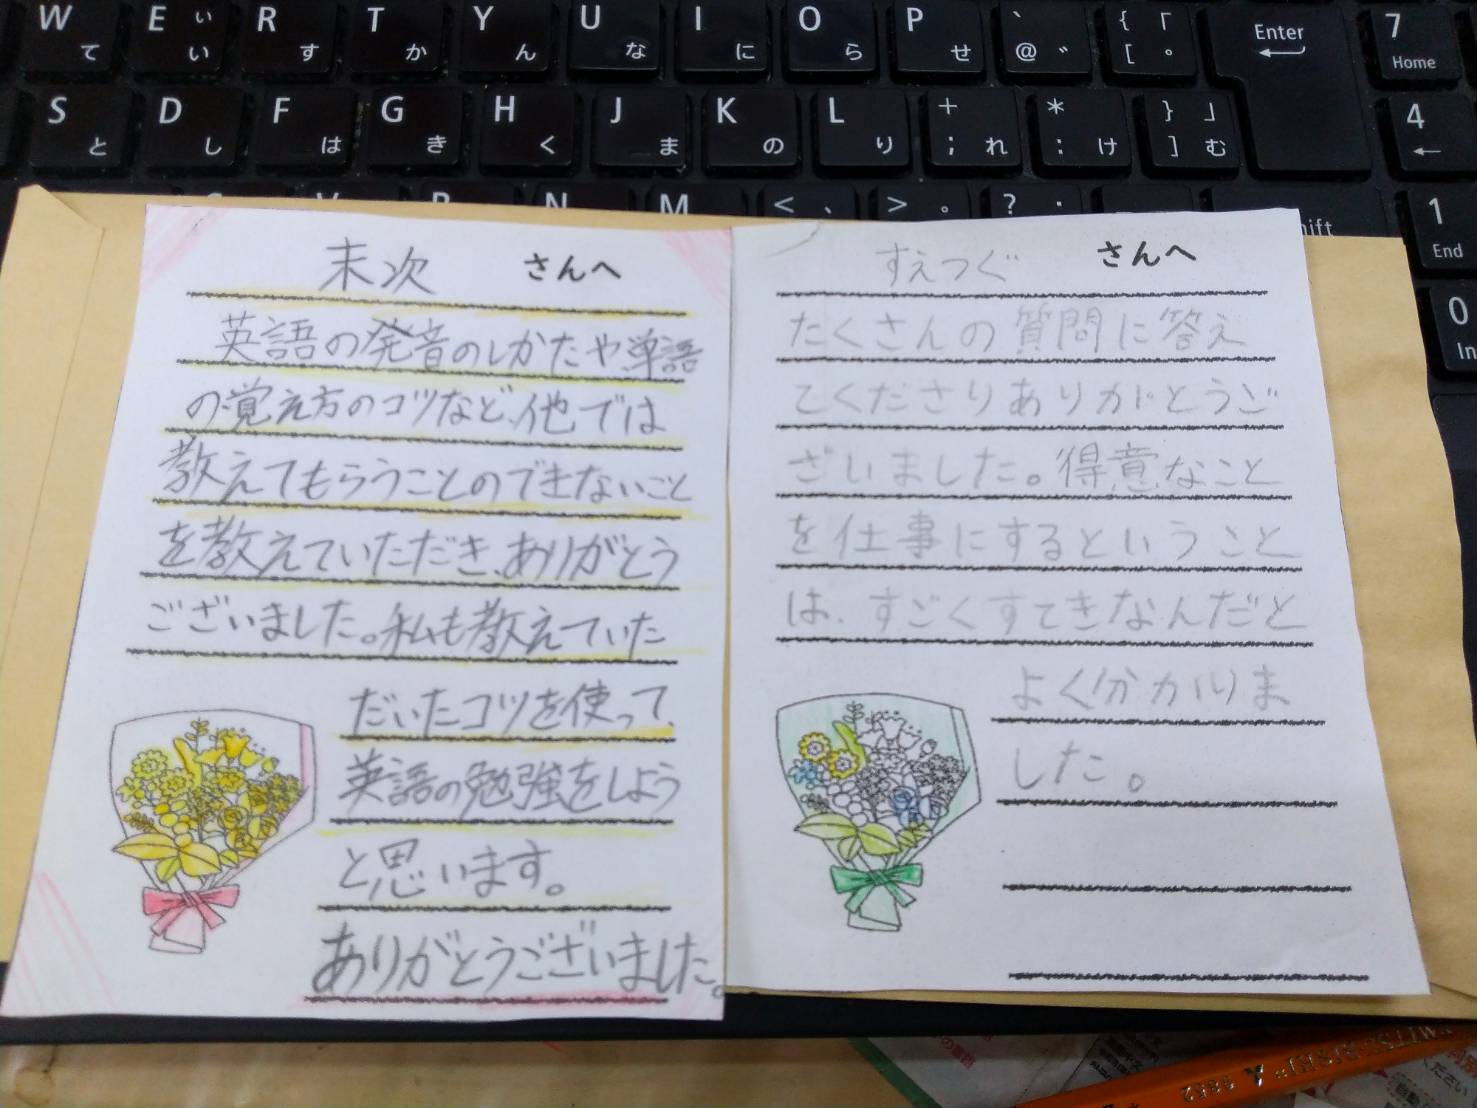 W て
E い ぃ
R す
T か
Y ん
U な
I に
O ら
P せ
` @ ゛
{ 「 [ °
Enter
7 Home
S と
D し
F は
G き
H く
J ま
K の
L り
+ ; れ
* : け
} 」 ] む
4 ←
N
M
< 、
> 。
? ・
1 End
0 In
末次 さんへ
英語の発音のしかたや、単語
の覚え方のコツなど、他では
教えてもらうことのできないこと
を教えていただき、ありがとう
ございました。私も教えていた
だいたコツを使って、
英語の勉強をしよう
と思います。
ありがとうございました。
すえつぐ さんへ
たくさんの質問に答え
てくださりありがとうご
ざいました。得意なこと
を仕事にするということ
は、すごくすてきなんだと
よく分かりま
した。
9852